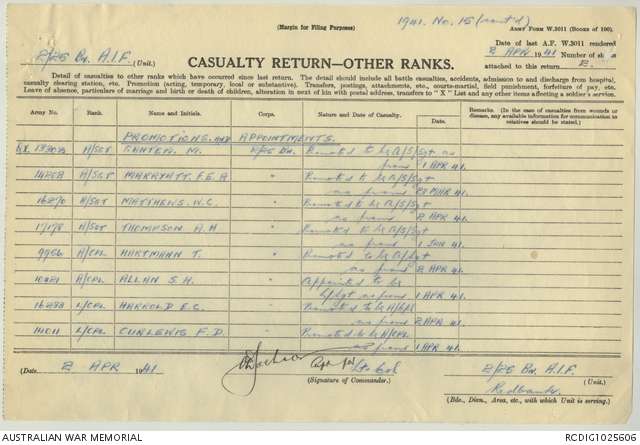 (Margin for Filing Purposes)
1941. No. 15 (cont'd)
Army Form W.3011 (Books of 100).
2/25 Bn. A.I.F. (Unit.)
Date of last A.F. W.3011 rendered
2 APR 1941 Number of sheets
attached to this return 2.
CASUALTY RETURN—OTHER RANKS.
Detail of casualties to other ranks which have occurred since last return. The detail should include all battle casualties, accidents, admission to and discharge from hospital,
casualty clearing station, etc. Promotion (acting, temporary, local or substantive). Transfers, postings, attachments, etc., courts-martial, field punishment, forfeiture of pay, etc.
Leave of absence, particulars of marriage and birth or death of children, alteration in next of kin with postal address, transfers to "X" List and any other items affecting a soldier's service.
Army No. Rank. Name and Initials. Corps. Nature and Date of Casualty. Date. Remarks. (In the case of casualties from wounds or disease, any available information for communication to relatives should be stated.)
PROMOTIONS AND APPOINTMENTS.
QX A/SGT M. 2/25 Bn. Promoted to be A/S/Sgt as
from 1 APR 41.
A/SGT MARRYATT. F.E.A " Promoted to be A/S/Sgt
as from MAR 41.
16270 A/SGT MATTHEWS. W.C. " Promoted to be A/S/Sgt
as from 2 APR 41.
A/SGT THOMPSON A.H " Promoted to be A/S/Sgt
as from 1 JAN 41.
9906 A/CPL HARTMANN T. " Promoted to be A/Sgt
as from 2 APR 41.
A/CPL. ALLAN S.H. " Appointed to be
L/Sgt as from 1 APR 41.
L/CPL HARROLD E.C. " Promoted to be A/Cpl
as from 2 APR 41.
14011 L/CPL. CURLEWIS F.D. " Promoted to be A/CPL.
as from 1 APR 41.
(Date 2 APR 1941
Capt for Lt Col
(Signature of Commander.)
2/25 Bn. A.I.F.
(Unit.)
Redbank.
(Bde., Divn., Area, etc., with which Unit is serving.)
AUSTRALIAN WAR MEMORIAL
RCDIG1025606